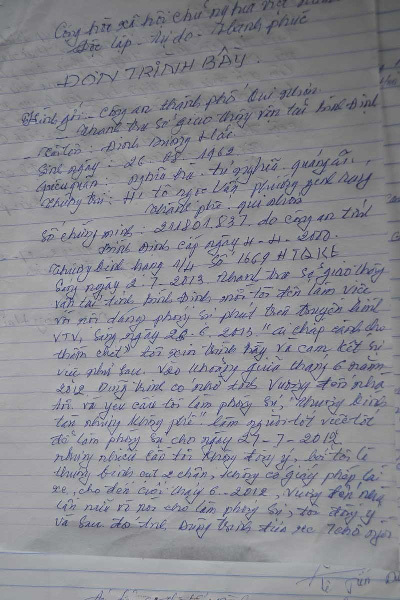 Cộng hòa xã hội chủ nghĩa Việt Nam
Độc lập - Tự do - Hạnh phúc
ĐƠN TRÌNH BÀY.
Kính gửi - Công an thành phố Qui Nhơn
Thanh tra Sở giao thông vận tải Bình Định
Tôi tên: Đinh Hải
Sinh ngày: 26-08-1962
quán: nghĩa trà - tư nghĩa - quảng ngãi,
trú: tô ngọc Vân phường ghềnh ráng
thành phố - qui nhơn
Số chứng minh: 211801837 do công an tỉnh
Bình Định cấp ngày 2010.
thương binh hạng 1/4 số 1669
Sáng ngày 2-7-2013 thanh tra Sở giao thông
vận tải tỉnh Bình Định, mời tôi đến làm việc
về nội dung phóng sự phát trên truyền hình
VTV, Sáng ngày 2013 "Ai chắp cánh cho
thần chết" tôi xin trình bày và cam kết sự
việc như sau. Vào khoảng giữa tháng 6 năm
2012 Dung binh có nhờ anh Vương đến nhà
tôi và yêu cầu tôi làm phóng sự, "thương binh
tàn nhưng không phế" làm người tốt việc tốt
để làm phóng sự cho ngày 27-7-2012
nhưng nhiều lần tôi không đồng ý, bởi tôi là
thương binh cụt 2 chân, không có giấy phép lái
xe, cho đến cuối tháng 6-2012, Vương đến nhà
lần nữa vì nói chỉ làm phóng sự, tôi đồng ý
và sau đó anh Dung đưa xe 7 chỗ